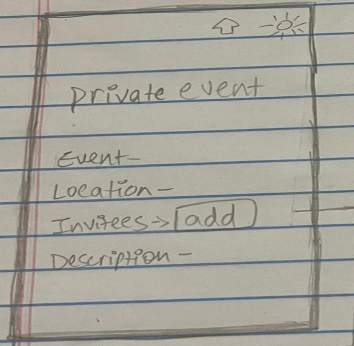 Private event
Event-
Location-
Invitees-> add
Description-